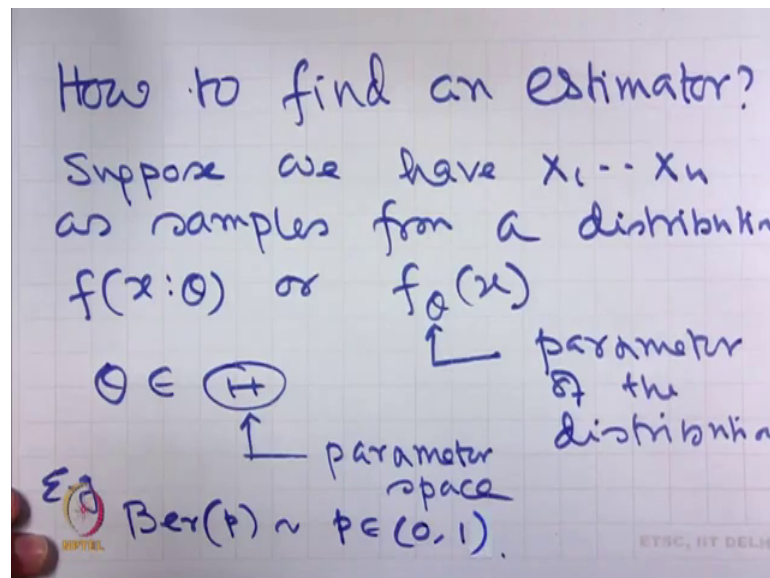 How to find an estimator?
Suppose we have x₁ .. xₙ
as samples from a distribution
f(x:θ) or f_θ(x)
parameter
of the
distribution
θ ∈ Ⓗ
parameter
space
E.g
Ber(p) ~ p ∈ (0, 1).
NPTEL
ETSC, IIT DELH